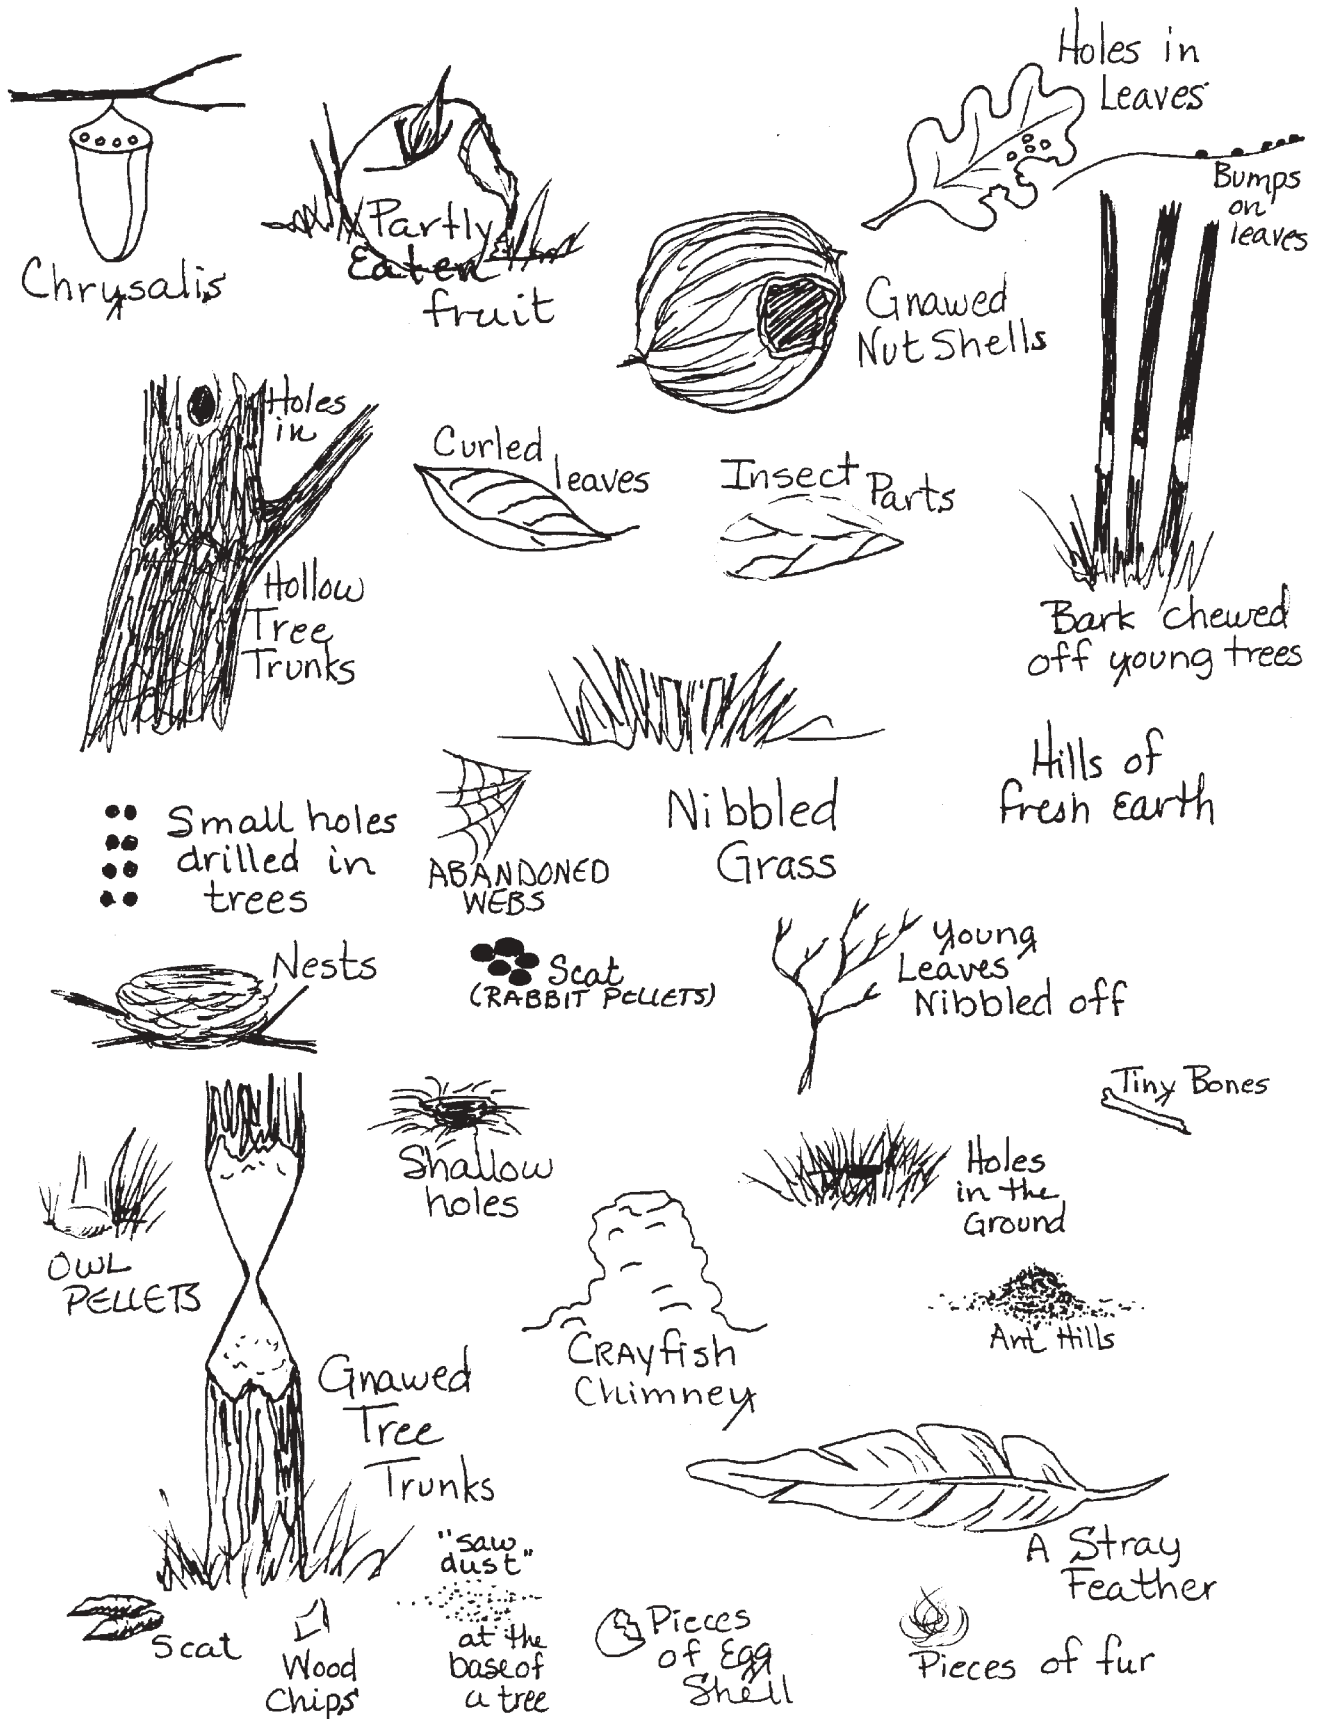 Holes in
Leaves
Bumps
on
leaves
Chrysalis
Partly
Eaten
fruit
Gnawed
Nut Shells
Holes
in
Hollow
Tree
Trunks
Curled
leaves
Insect
Parts
Bark chewed
off young trees
Hills of
fresh Earth
Small holes
drilled in
trees
ABANDONED
WEBS
Nibbled
Grass
Nests
Scat
(RABBIT PELLETS)
Young
Leaves
Nibbled off
Tiny Bones
Shallow
holes
Holes
in the
Ground
OWL
PELLETS
CRAyfish
Chimney
Ant Hills
Gnawed
Tree
Trunks
A Stray
Feather
Scat
Wood
Chips
"saw
dust"
at the
base of
a tree
Pieces
of Egg
Shell
Pieces of fur